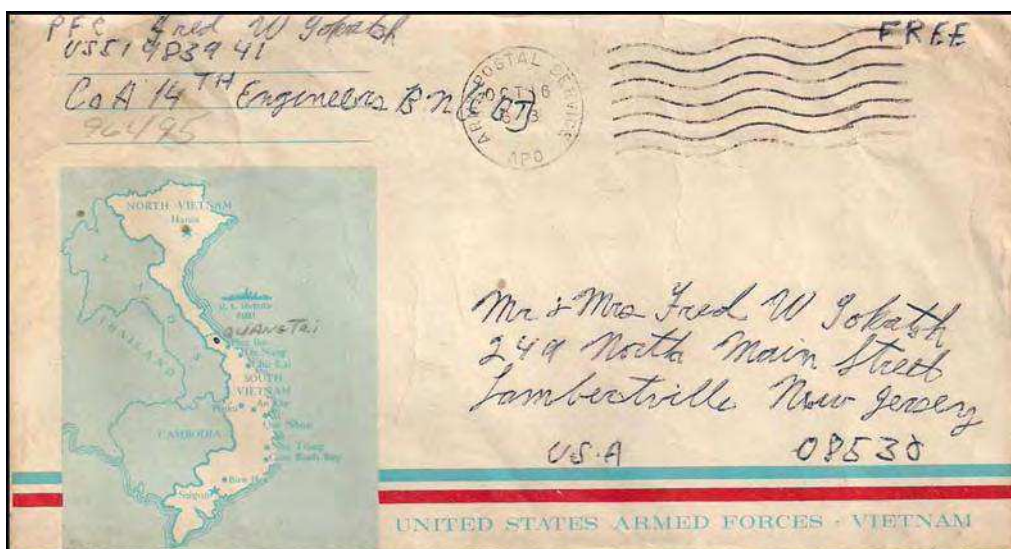 PFC Fred W Gokatsh
US51983941
Co A 14TH Engineers BN (CBT)
96495
ARMY POSTAL SERVICE
OCT 16
APO
FREE
NORTH VIETNAM
Hanoi
LAOS
THAILAND
QUANGTRI
Phu Bai
Da Nang
Chu Lai
SOUTH
VIETNAM
Pleiku
An Khe
Qui Nhon
Nha Trang
Cam Ranh Bay
CAMBODIA
Bien Hoa
Saigon
Mr & Mrs Fred W Gokatsh
249 North Main Street
Lambertville New Jersey
USA 08530
UNITED STATES ARMED FORCES · VIETNAM